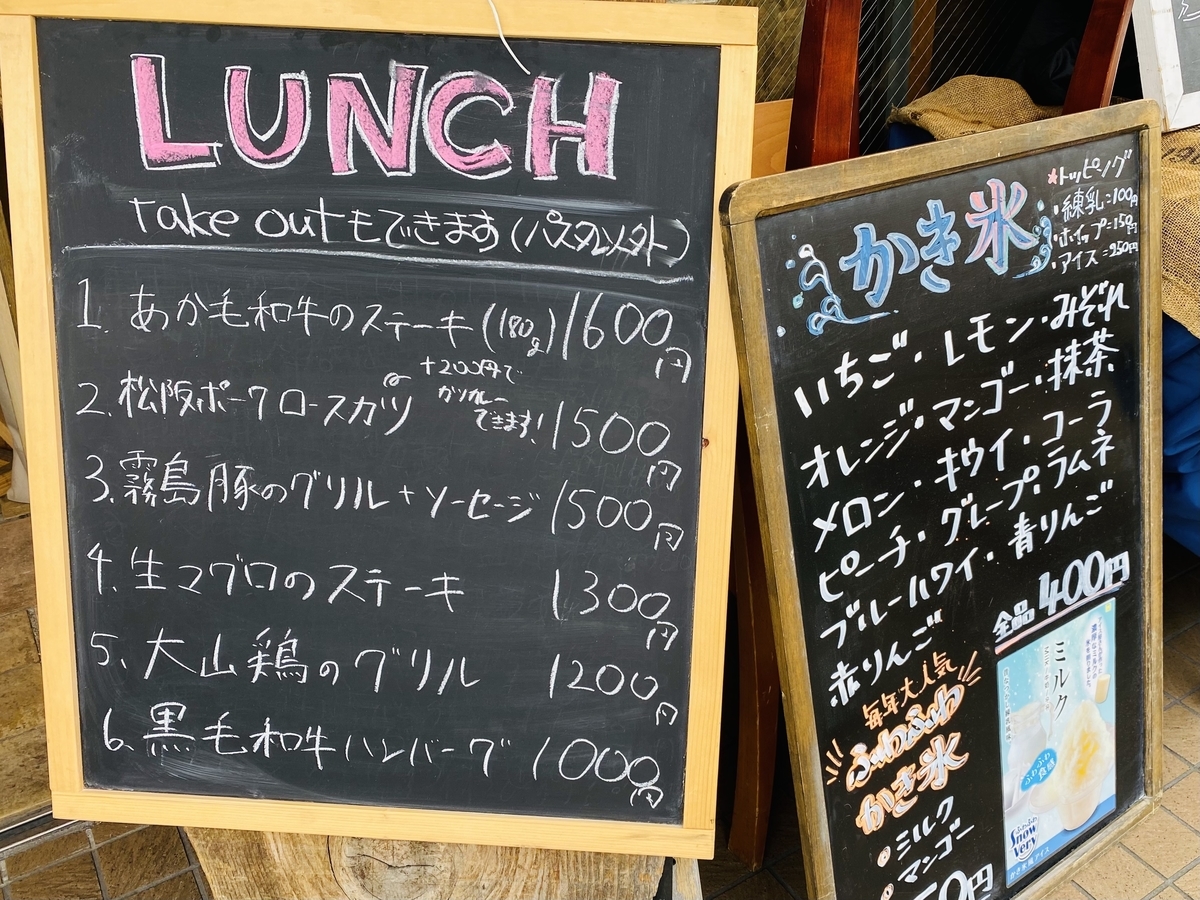 LUNCH
Take outもできます(パスタソフト外)
1. あか毛和牛のステーキ(180g) 1600円
2. 松阪ポークロースカツ 1500円
+200円で
カツカレー
できます!
3. 霧島豚のグリル+ソーセージ 1500円
4. 生マグロのステーキ 1300円
5. 大山鶏のグリル 1200円
6. 黒毛和牛ハンバーグ 1000円
かき氷
★トッピング
・練乳=100円
・ホイップ=150円
・アイス=250円
いちご・レモン・みぞれ
オレンジ・マンゴー・抹茶
メロン・キウイ・コーラ
ピーチ・グレープ・ラムネ
ブルーハワイ・青りんご
赤りんご
全品400円
毎年大人気
ふわふわ
かき氷
ミルク
マンゴー
50円
ミルク
ふわふわ
食感
ふわふわ
Snow
Very
かき氷風アイス